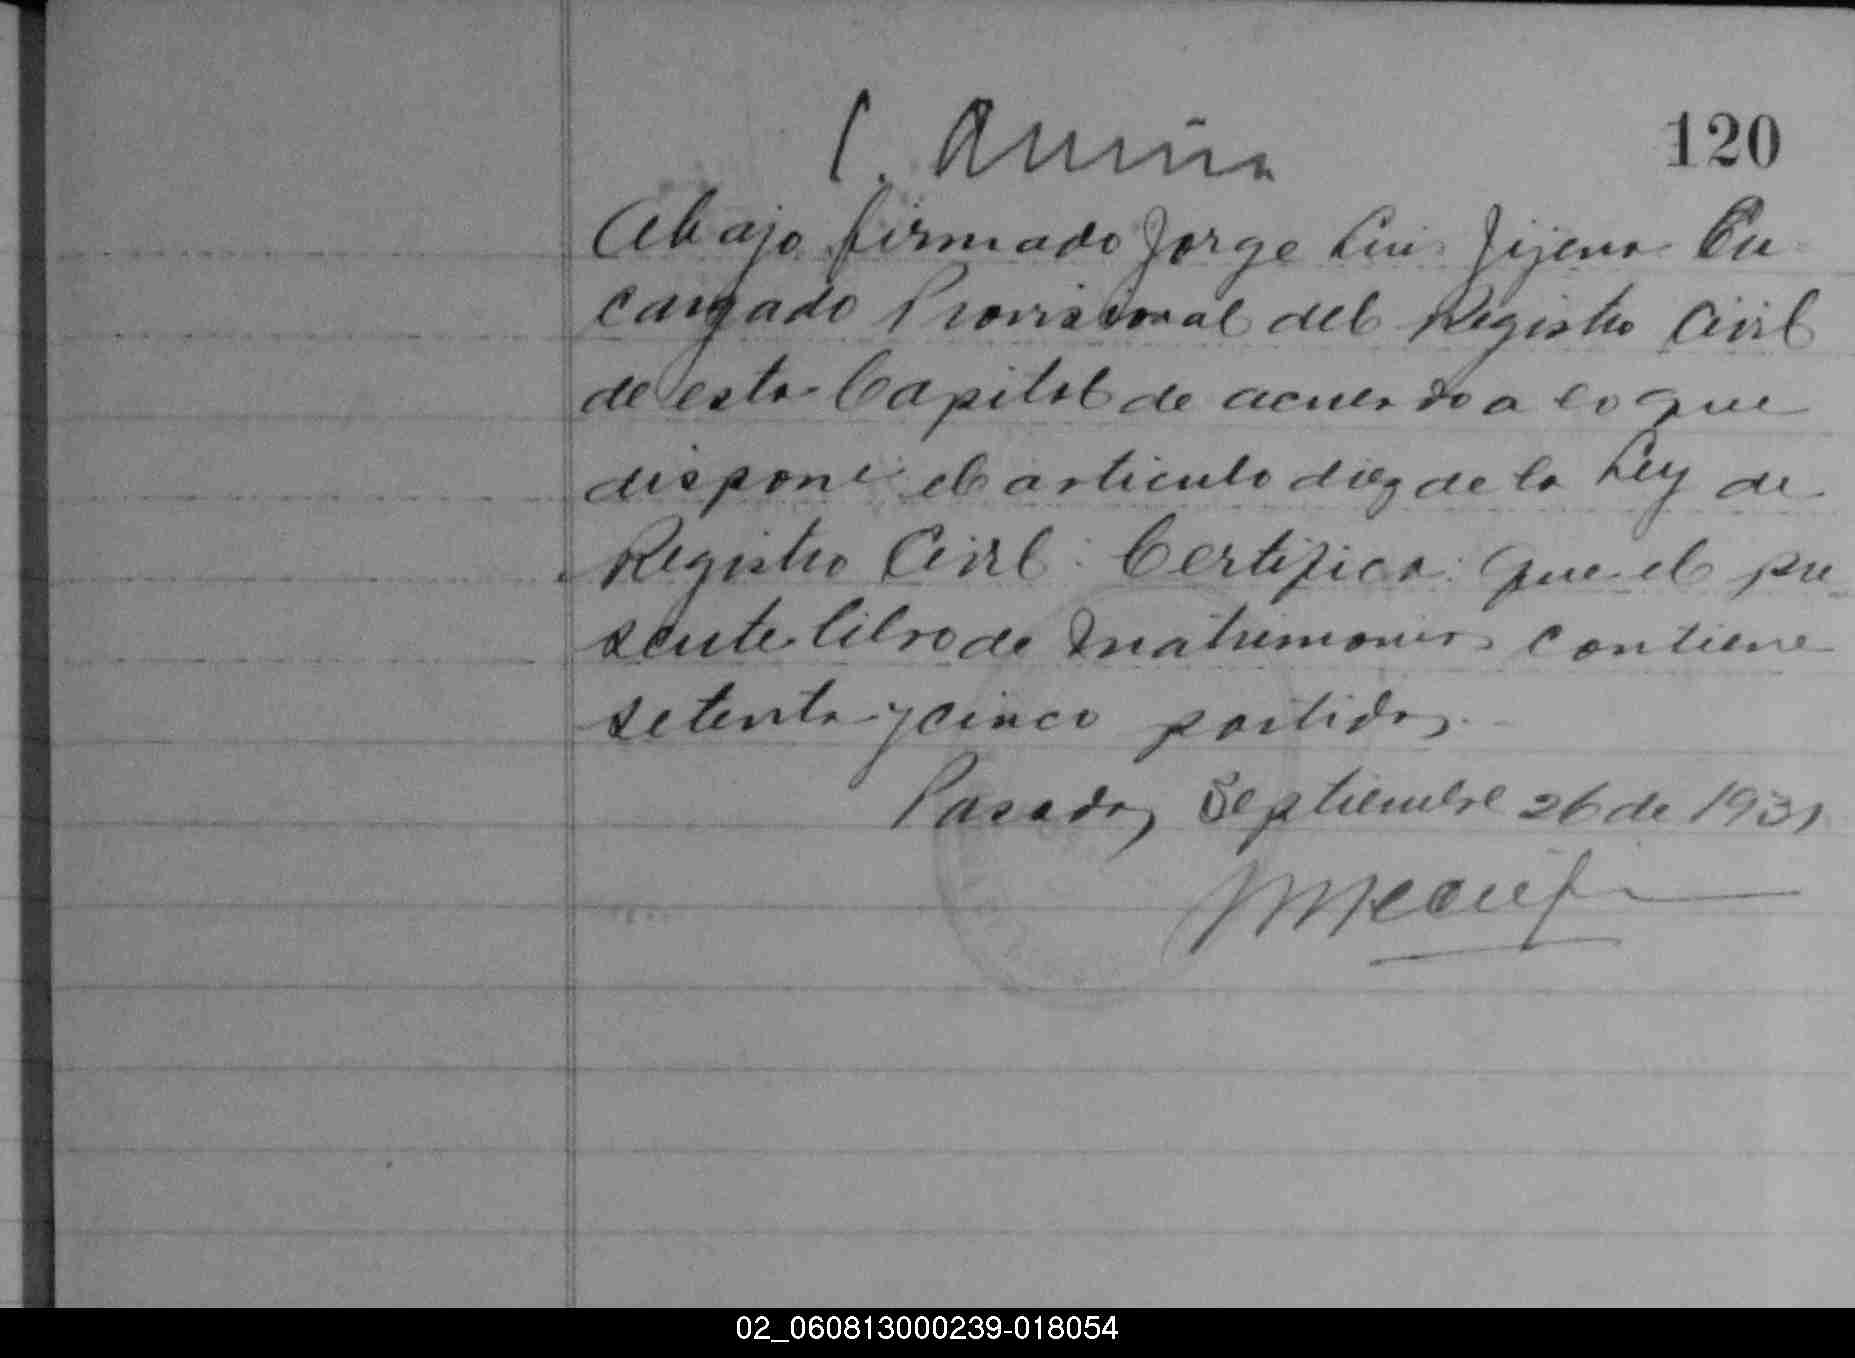 120
Abajo firmado Jorge Luis Jijena En
cargado Provisional del Registro Civil
de esta Capital de acuerdo a lo que
dispone el articulo diez de la Ley de
Registro Civil. Certifica: que el pre
sente libro de Matrimonios contiene
setenta y cinco partidas.
Posadas, Septiembre 26 de 1931
02_060813000239-018054